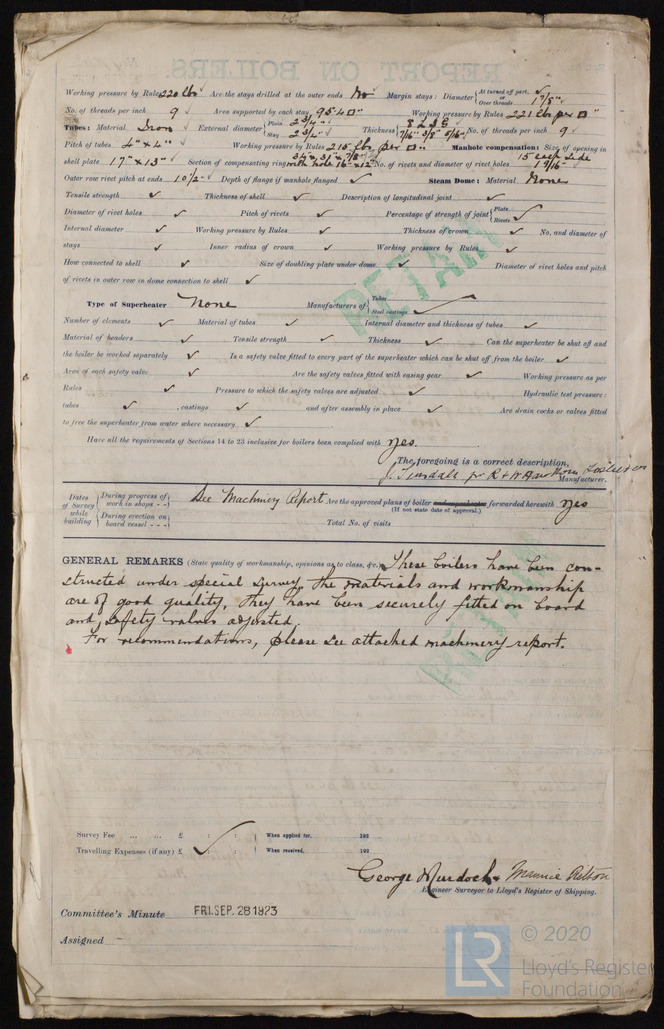 REPORT ON BOILERS.
Working pressure by Rules 220 lbs ✓ Are the stays drilled at the outer ends No Margin stays: Diameter { At turned off part, ✓ Over threads 1 7/8" ✓
No. of threads per inch 9 Area supported by each stay 95.4 □" Working pressure by Rules 221 lbs per □" ✓
Tubes: Material Iron External diameter { Plain 2 3/4" Stay 2 3/4" Thickness { 8 LSG 7/16" 3/8" 5/16" No. of threads per inch 9
Pitch of tubes 4" x 4" Working pressure by Rules 215 lbs per □" Manhole compensation: Size of opening in
shell plate 17" x 13" Section of compensating ring No. of rivets and diameter of rivet holes 1 9/16"
Outer row rivet pitch at ends 10 1/2" Depth of flange if manhole flanged ✓ Steam Dome: Material None
Tensile strength ✓ Thickness of shell ✓ Description of longitudinal joint ✓
Diameter of rivet holes ✓ Pitch of rivets ✓ Percentage of strength of joint { Plate Rivets ✓
Internal diameter ✓ Working pressure by Rules ✓ Thickness of crown ✓ No. and diameter of
stays ✓ Inner radius of crown ✓ Working pressure by Rules ✓
How connected to shell ✓ Size of doubling plate under dome ✓ Diameter of rivet holes and pitch
of rivets in outer row in dome connection to shell ✓
RETAIN
Type of Superheater None Manufacturers of { Tubes Steel castings ✓
Number of elements ✓ Material of tubes ✓ Internal diameter and thickness of tubes ✓
Material of headers ✓ Tensile strength ✓ Thickness ✓ Can the superheater be shut off and
the boiler be worked separately ✓ Is a safety valve fitted to every part of the superheater which can be shut off from the boiler ✓
Area of each safety valve ✓ Are the safety valves fitted with easing gear ✓ Working pressure as per
Rules ✓ Pressure to which the safety valves are adjusted ✓ Hydraulic test pressure:
tubes ✓, castings ✓ and after assembly in place ✓ Are drain cocks or valves fitted
to free the superheater from water where necessary ✓
Have all the requirements of Sections 14 to 23 inclusive for boilers been complied with yes.
The foregoing is a correct description,
J. Tinsdale for R & W Hawthorn Leslie & Co
Manufacturer.
Dates of Survey while building { During progress of work in shops - - See Machinery Report Are the approved plans of boiler and superheater forwarded herewith yes
(If not state date of approval.)
During erection on board vessel - - - Total No. of visits
GENERAL REMARKS (State quality of workmanship, opinions as to class, &c.) These boilers have been con-
structed under special survey, the materials and workmanship
are of good quality, they have been securely fitted on board
and safety valves adjusted.
For recommendations, please see attached machinery report.
RETAIN
Survey Fee ... ... £ : : When applied for, 192
Travelling Expenses (if any) £ ✓ : : When received, 192
George Murdoch &
Engineer Surveyor to Lloyd's Register of Shipping.
Committee's Minute FRI. SEP. 28 1923
Assigned -
LR © 2020
Lloyd's Register
Foundation